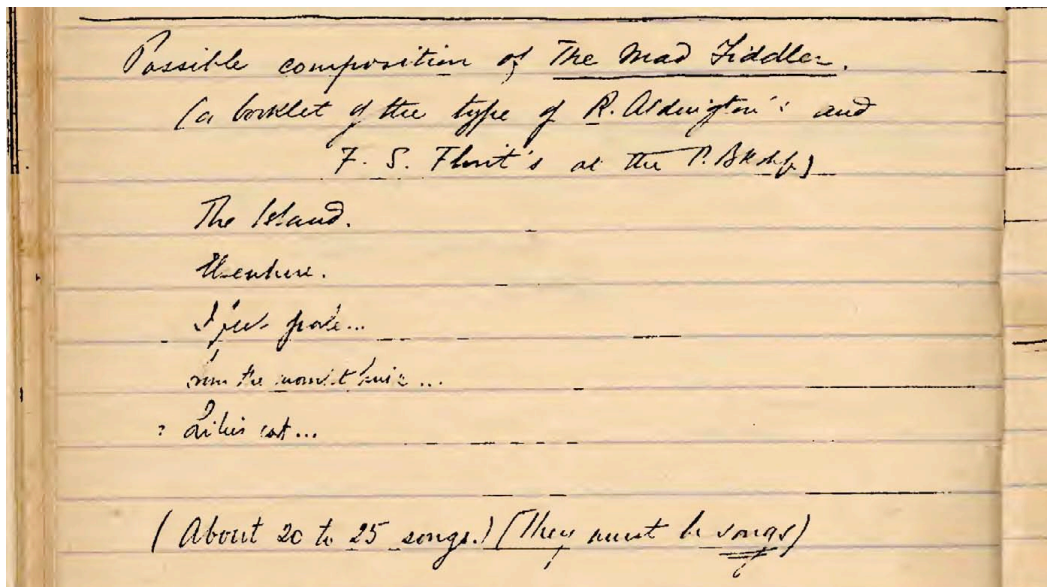 Possible composition of The Mad Fiddler.
(a booklet of the type of R. Aldington's and
F. S. Flint's at the P. Bkshp)
The Island.
Elsewhere.
I feel pale...
the
? Lilies
(About 20 to 25 songs.) (They must be songs)